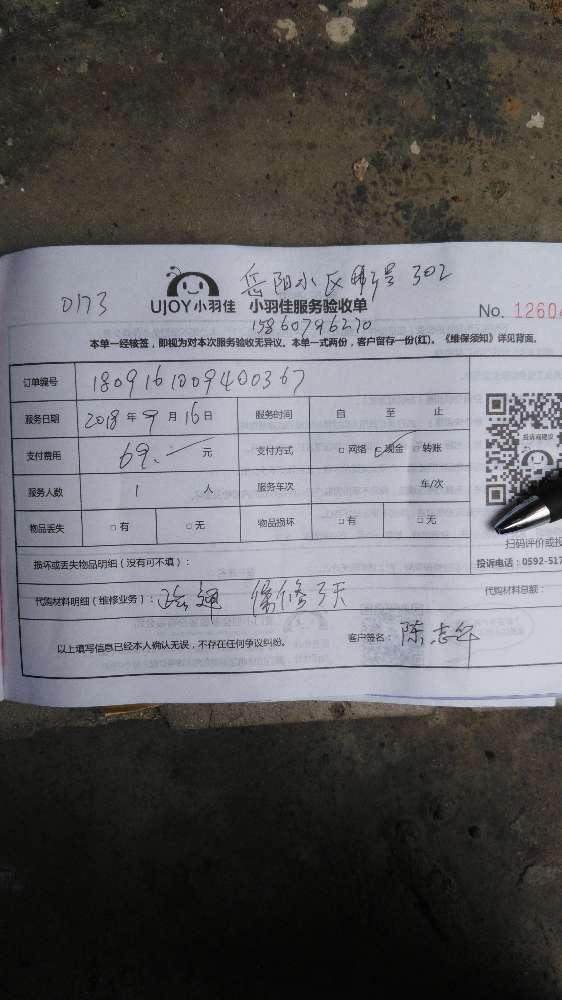 岳阳小区 号302
0173
UJOY小羽佳 小羽佳服务验收单
No. 1260
15860796270
本单一经核签，即视为对本次服务验收无异议。本单一式两份，客户留存一份(红)。《维保须知》详见背面。
订单编号 1809161009400367
服务日期 2018年9月16日 服务时间 自 至 止
支付费用 69.一 元 支付方式 □网络 ☑现金 转账
投诉或建议
服务人数 1 人 服务车次 车/次
物品丢失 □有 □无 物品损坏 □有 □无
扫码评价或投
损坏或丢失物品明细（没有可不填）：
投诉电话：0592-517
代购材料明细（维修业务）： 疏通 保修3天
代购材料总额：
以上填写信息已经本人确认无误，不存在任何争议纠纷。 客户签名： 陈志